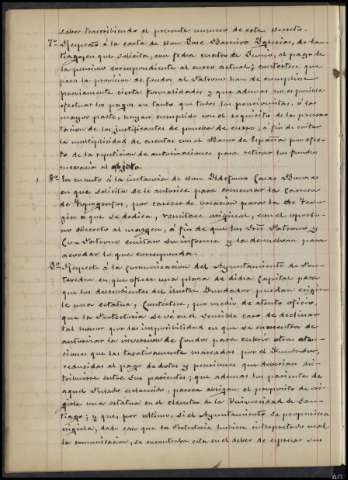 haber transcribiendo el presente número de este Decreto.
7º Respecto á la carta de Don José Barreiro Iglesias, de San-
tiago, en que solicita, con fecha cuatro de Junio, el pago de
la pensión correspondiente al curso actual; contéstese que
para la provisión de fondos al Patrono han de cumplirse
previamente ciertas formalidades y que además no es posible
efectuar los pagos en tanto que todos los pensionistas, ó la
mayor parte, hayan cumplido con el requisito de la presen-
tación de los justificantes de prueba de curso, á fin de evitar
la multiplicidad de cuentas con el Banco de España por efec-
to de la repetición de autorizaciones para retirar los fondos
necesarios al objeto.
8º En cuanto á la instancia de Don Ildefonso Casas
en que solicita se le autorice para comenzar la carrera
de Topógrafos, por carecer de vocación para la de Teolo-
gía á que se dedica, remítase original, con el oportuno
decreto al margen, á fin de que los Sres Patrono y
Co-Patrono emitan su informe y la devuelvan para
acordar lo que corresponda.
9º Respecto á la comunicación del Ayuntamiento de Pon-
tevedra en que ofrece una plaza de dicha Capital para
que los descendientes del ilustre Fundador puedan erigir-
le una estatua; Contéstese, por medio de atento oficio,
que la Protectoria se vé en el sensible caso de declinar
tal honor por la imposibilidad en que se encuentra de
autorizar la inversión de fondos para cubrir otras aten-
ciones que las taxativamente marcadas por el Fundador,
reducidas al pago de dotes y pensiones que deberían dis-
tribuirse entre sus parientes; que además los parientes de
aquel Prelado extinguido, parece abrigan el propósito de eri-
girle una estatua en el claustro de la Universidad de San-
tiago; y que, por último, si el Ayuntamiento se propusiera
erigirla, dado caso que la Protectoria hubiera interpretado mal
la comunicación, se encontraba esta en el deber de expresar su